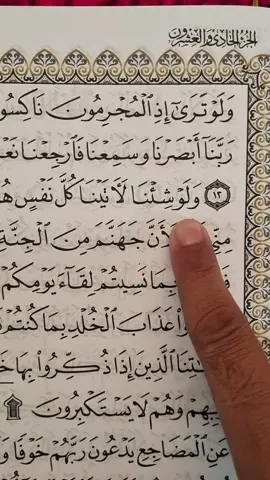 الجزء الحادي والعشرون
وَلَوْ تَرَىٰٓ إِذِ ٱلْمُجْرِمُونَ نَاكِسُو
رَبَّنَآ أَبْصَرْنَا وَسَمِعْنَا فَٱرْجِعْنَا نَعْ
١٣ وَلَوْ شِئْنَا لَـَٔاتَيْنَا كُلَّ نَفْسٍ هُ
مِنِّي لَأَنَّ جَهَنَّمَ مِنَ ٱلْجِنَّةِ
بِمَا نَسِيتُمْ لِقَآءَ يَوْمِكُمْ
عَذَابَ ٱلْخُلْدِ بِمَا كُنتُمْ
تِنَا ٱلَّذِينَ إِذَا ذُكِّرُوا۟ بِهَا خَ
بِّهِمْ وَهُمْ لَا يَسْتَكْبِرُونَ ۩
عَنِ ٱلْمَضَاجِعِ يَدْعُونَ رَبَّهُمْ خَوْفًا وَ